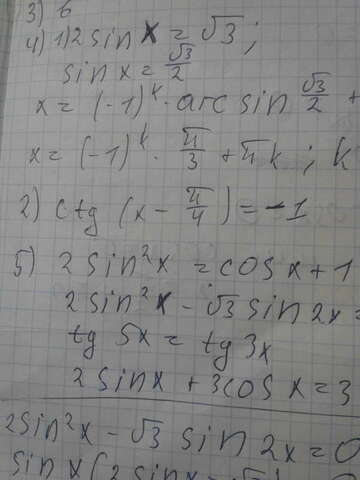 3) 6
4) 1) 2 sin x = √3 ;
sin x = √3/2
x = (-1)^k · arc sin √3/2 +
x = (-1)^k · π/3 + πk ; k
2) ctg (x - π/4) = -1
5) 2 sin²x = cos x + 1
2 sin²x - √3 sin 2x =
tg 5x = tg 3x
2 sin x + 3 cos x = 3
2 sin²x - √3 sin 2x = 0
sin x (2 sin x - √3